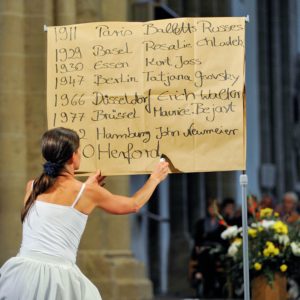 1911 Paris Balletts Russes
1929 Basel Rosalie Chladek
1930 Essen Kurt Joss
1947 Berlin Tatjana Gsovsky
1966 Düsseldorf Erich Walter
1977 Brüssel Maurice Bejart
2 Hamburg John Neumeier
0 Herford